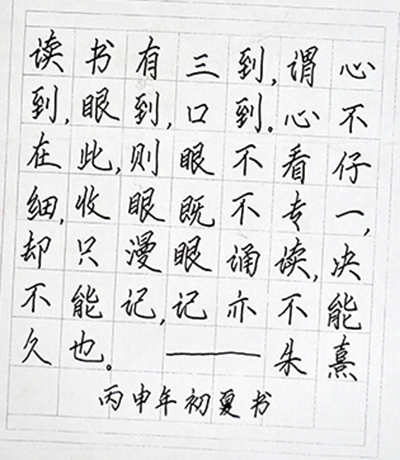 读书有三到,谓心
到,眼到,口到。心不
在此,则眼不看仔
细,收眼既不专一,
却只漫眼诵读,决
不能记,记亦不能
久也。——朱熹
丙申年初夏书